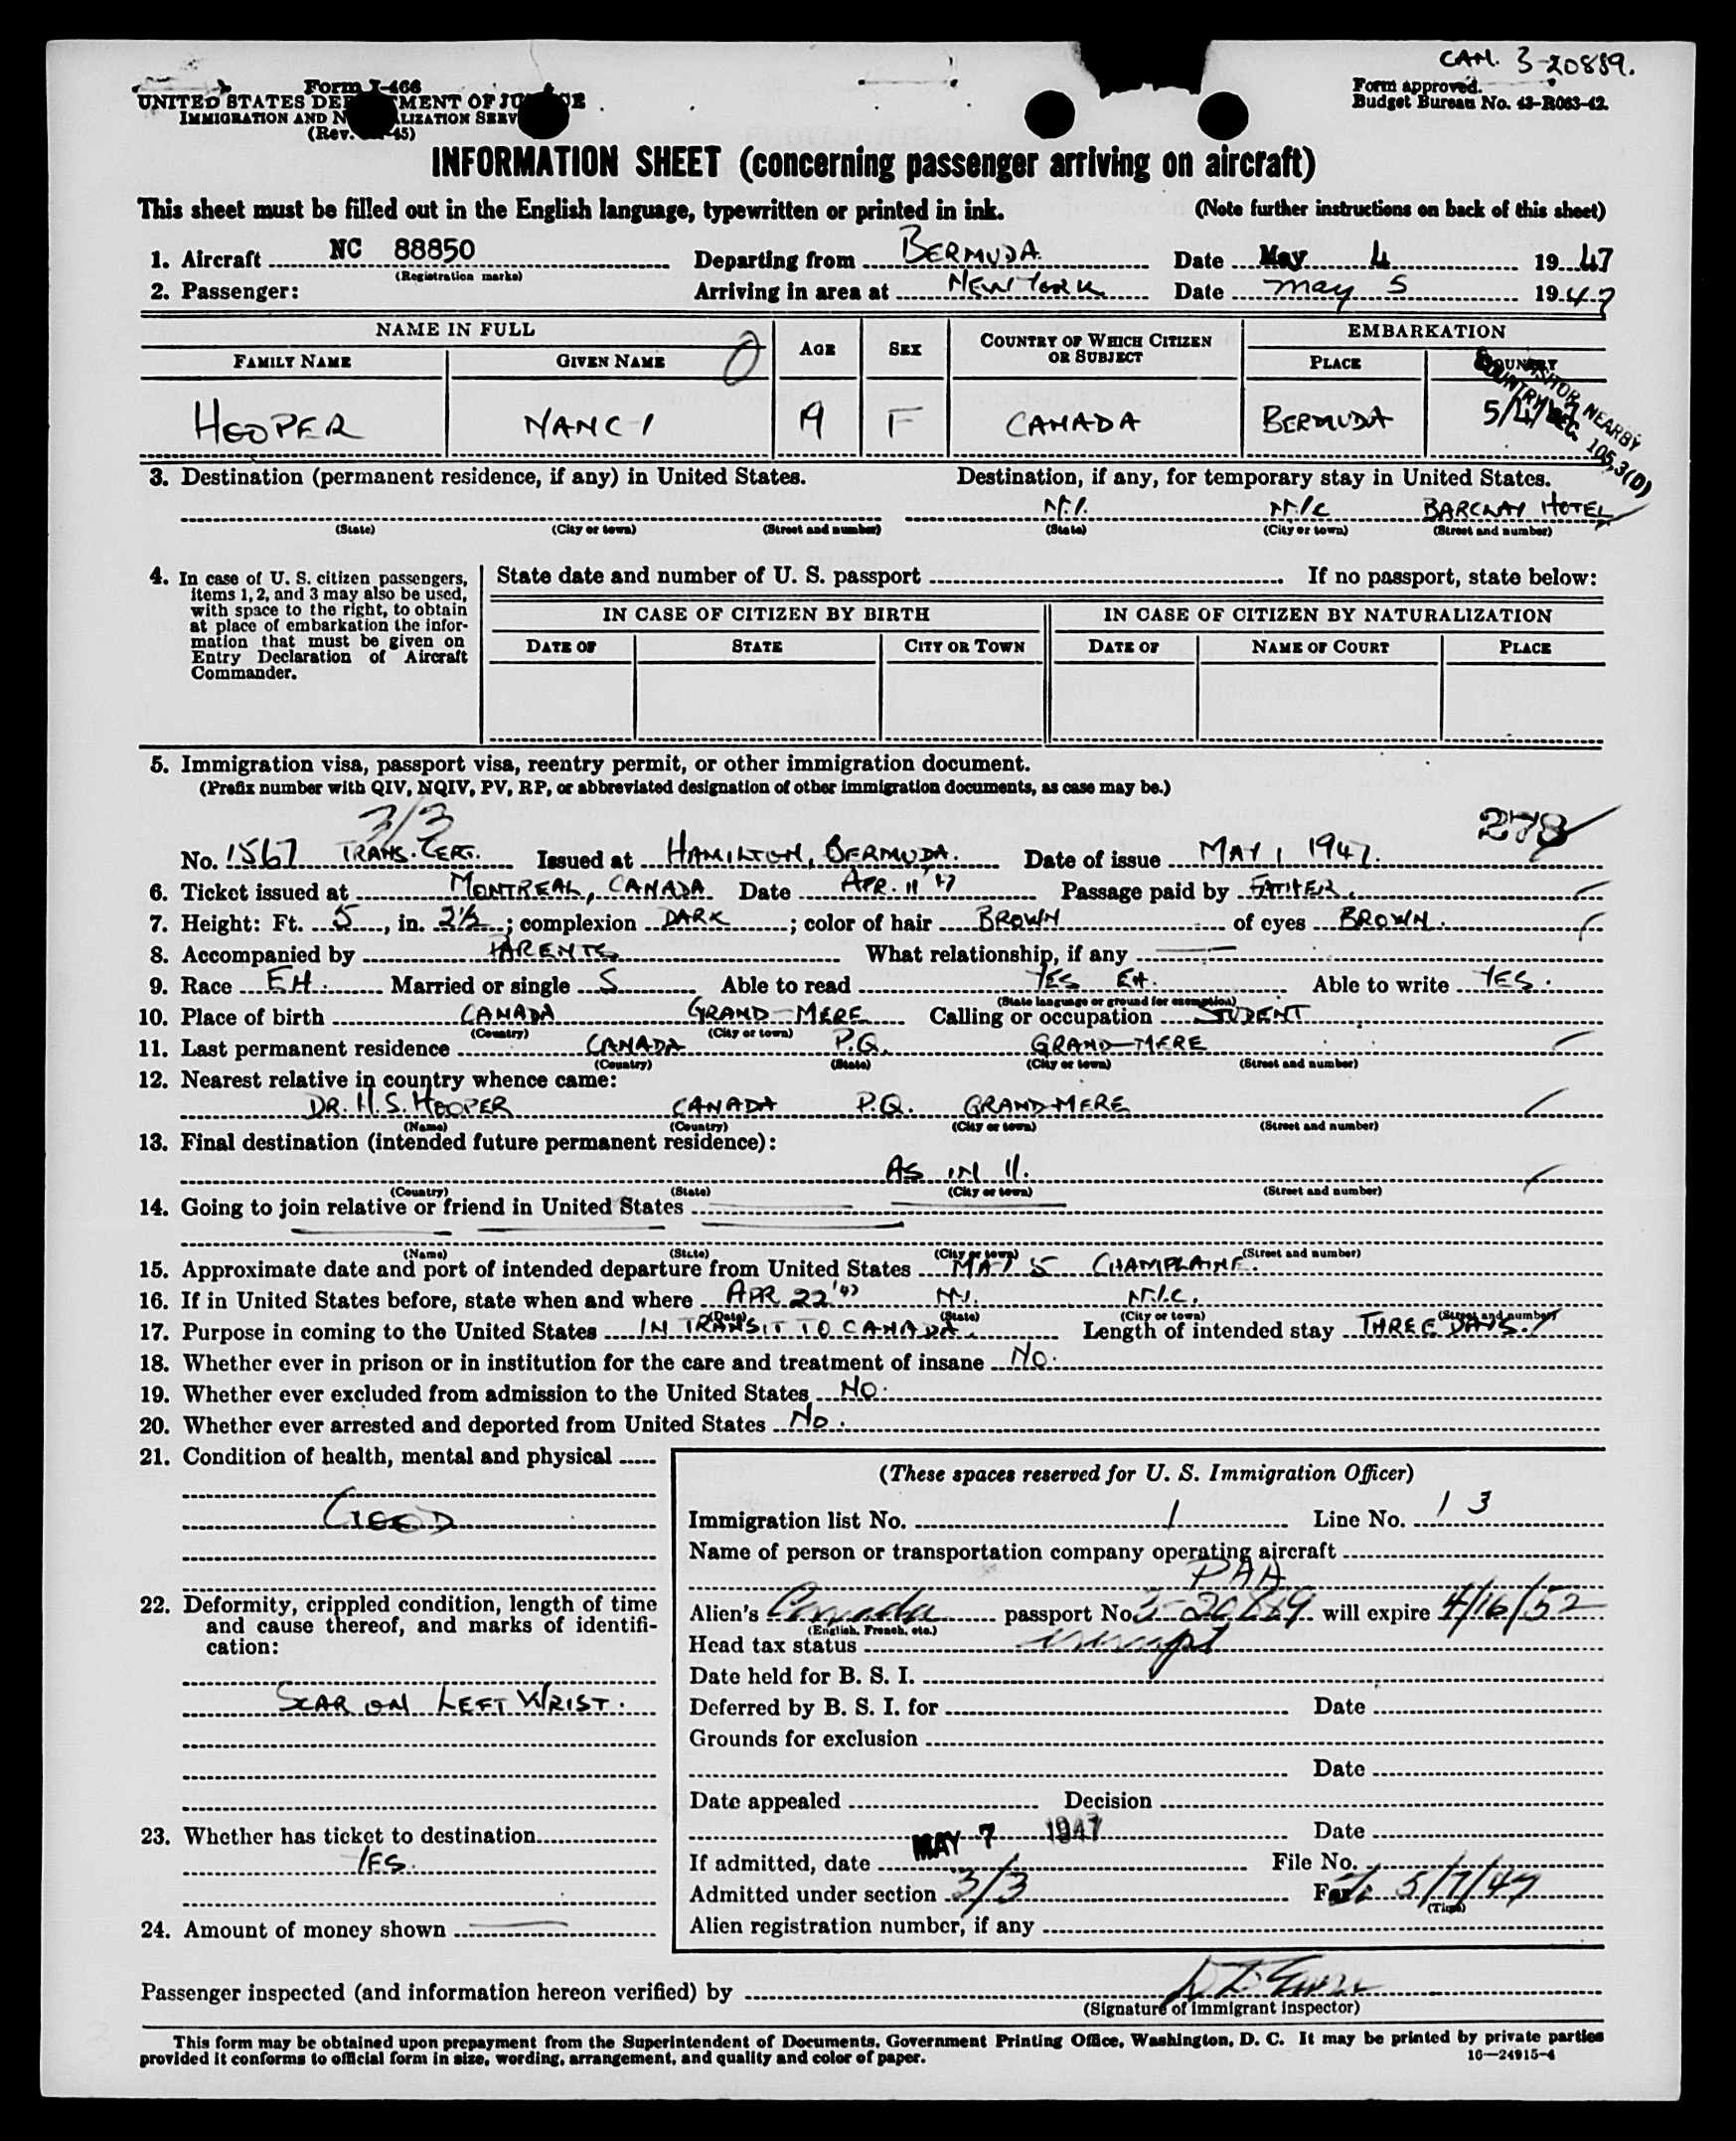 CAN. 3-20889.
Form I-466
UNITED STATES DEPARTMENT OF JUSTICE
IMMIGRATION AND NATURALIZATION SERV
(Rev. 45)
Form approved.
Budget Bureau No. 43-R063-42.
INFORMATION SHEET (concerning passenger arriving on aircraft)
This sheet must be filled out in the English language, typewritten or printed in ink. (Note further instructions on back of this sheet)
1. Aircraft NC 88850 Departing from BERMUDA. Date May 4 1947
(Registration marks)
2. Passenger: Arriving in area at NEW YORK Date May 5 1947
NAME IN FULL AGE SEX COUNTRY OF WHICH CITIZEN OR SUBJECT EMBARKATION
FAMILY NAME GIVEN NAME PLACE COUNTRY
HOOPER NANCY F CANADA BERMUDA 5/4/47
VISITOR NEARBY
COUNTRY SEC. 105.3(D)
3. Destination (permanent residence, if any) in United States. Destination, if any, for temporary stay in United States.
N.Y. N.Y.C BARCLAY HOTEL
(State) (City or town) (Street and number) (State) (City or town) (Street and number)
4. In case of U. S. citizen passengers, items 1, 2, and 3 may also be used, with space to the right, to obtain at place of embarkation the information that must be given on Entry Declaration of Aircraft Commander.
State date and number of U. S. passport If no passport, state below:
IN CASE OF CITIZEN BY BIRTH IN CASE OF CITIZEN BY NATURALIZATION
DATE OF STATE CITY OR TOWN DATE OF NAME OF COURT PLACE
5. Immigration visa, passport visa, reentry permit, or other immigration document.
(Prefix number with QIV, NQIV, PV, RP, or abbreviated designation of other immigration documents, as case may be.)
3/3 278
No. 1567 TRANS. CERT. Issued at HAMILTON, BERMUDA. Date of issue MAY 1 1947.
6. Ticket issued at MONTREAL, CANADA Date APR. 11 '47 Passage paid by FATHER.
7. Height: Ft. 5, in. 2½; complexion DARK; color of hair BROWN of eyes BROWN.
8. Accompanied by PARENTS What relationship, if any
9. Race EH. Married or single S Able to read YES EH. Able to write YES.
(State language or ground for exemption)
10. Place of birth CANADA GRAND-MERE Calling or occupation STUDENT
(Country) (City or town)
11. Last permanent residence CANADA P.Q. GRAND-MERE
(Country) (State) (City or town) (Street and number)
12. Nearest relative in country whence came:
DR. H.S. HOOPER CANADA P.Q. GRAND-MERE
(Name) (Country) (City or town) (Street and number)
13. Final destination (intended future permanent residence):
AS IN 11.
(Country) (State) (City or town) (Street and number)
14. Going to join relative or friend in United States
(Name) (State) (City or town) (Street and number)
15. Approximate date and port of intended departure from United States MAY 5 CHAMPLAINE.
16. If in United States before, state when and where APR 22 '47 N.Y. N.Y.C.
(Date) (State) (City or town) (Street and number)
17. Purpose in coming to the United States IN TRANSIT TO CANADA. Length of intended stay THREE DAYS.
18. Whether ever in prison or in institution for the care and treatment of insane NO.
19. Whether ever excluded from admission to the United States NO.
20. Whether ever arrested and deported from United States NO.
21. Condition of health, mental and physical
GOOD
22. Deformity, crippled condition, length of time and cause thereof, and marks of identification:
SCAR ON LEFT WRIST.
23. Whether has ticket to destination
YES.
24. Amount of money shown
(These spaces reserved for U. S. Immigration Officer)
Immigration list No. 1 Line No. 13
Name of person or transportation company operating aircraft
PAA
Alien's Canada passport No. 3-20889 will expire 4/16/52
(English, French, etc.)
Head tax status exempt
Date held for B. S. I.
Deferred by B. S. I. for Date
Grounds for exclusion
Date
Date appealed Decision
Date
If admitted, date MAY 7 1947 File No.
Admitted under section 3/3 For 5/7/47
(Time)
Alien registration number, if any
Passenger inspected (and information hereon verified) by
(Signature of immigrant inspector)
This form may be obtained upon prepayment from the Superintendent of Documents, Government Printing Office, Washington, D. C. It may be printed by private parties
provided it conforms to official form in size, wording, arrangement, and quality and color of paper. 16—24915-4